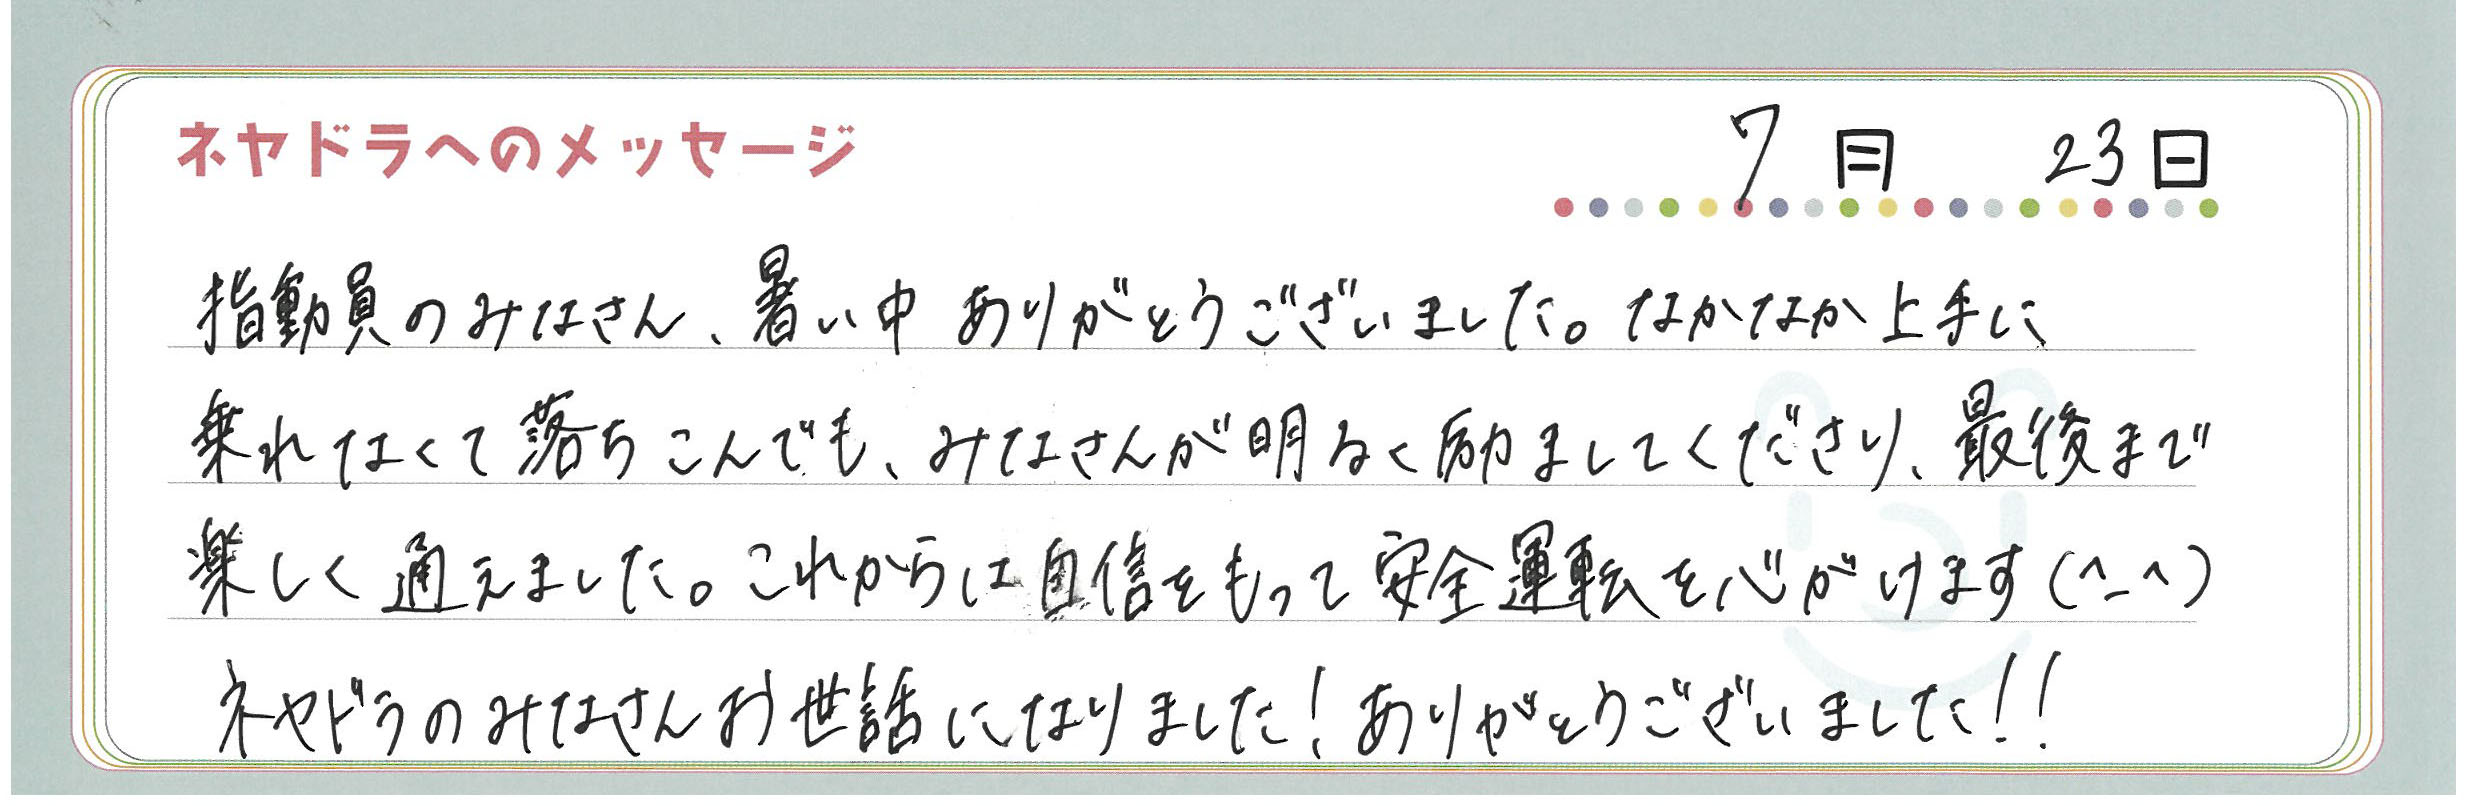 ネヤドラへのメッセージ
7月 23日
指動員のみなさん、暑い中 ありがとうございました。なかなか上手に
乗れなくて落ちこんでも、みなさんが明るく励ましてくださり、最後まで
楽しく通えました。これからは自信をもって安全運転を心がけます(^-^)
ネヤドラのみなさんお世話になりました!ありがとうございました!!